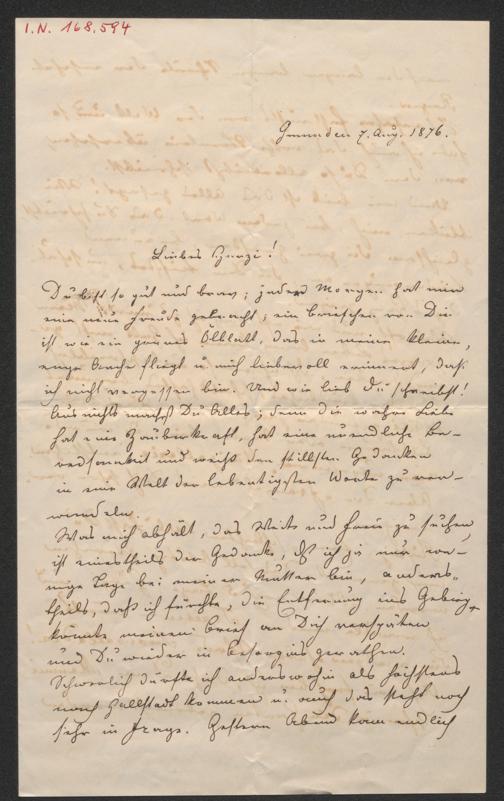 I.N. 168.594
Gmunden 7. Aug. 1876.
Liebes Herzi!
Du bist so gut und brav; jeder Morgen hat mir
eine neue Freude gebracht; ein Briefchen von Dir
ist wie ein grünes Ölblatt, das in meine kleine,
enge Arche fliegt u mich liebevoll erinnert, daß
ich nicht vergessen bin. Und wie lieb Du schreibst!
Aus nichts machst Du Alles; denn die wahre Liebe
hat eine Zauberkraft, hat eine unendliche Be-
redsamkeit und weiß den stillsten Gedanken
in eine Welt der lebentigsten Worte zu ver-
wandeln.
Was mich abhält, das Weite und Freie zu suchen,
ist einestheils der Gedanke, daß ich ja nur we-
nige Tage bei meiner Mutter bin, anders-
theils, daß ich fürchte, die Entfernung ins Gebirg
könnte meinen Brief an Dich verspäten
und Du wieder in Besorgnis gerathen.
Schwerlich dürfte ich anderswohin als höchstens
nach Hallstadt kommen u. auch das steht noch
sehr in Frage. Gestern Abend kam endlich